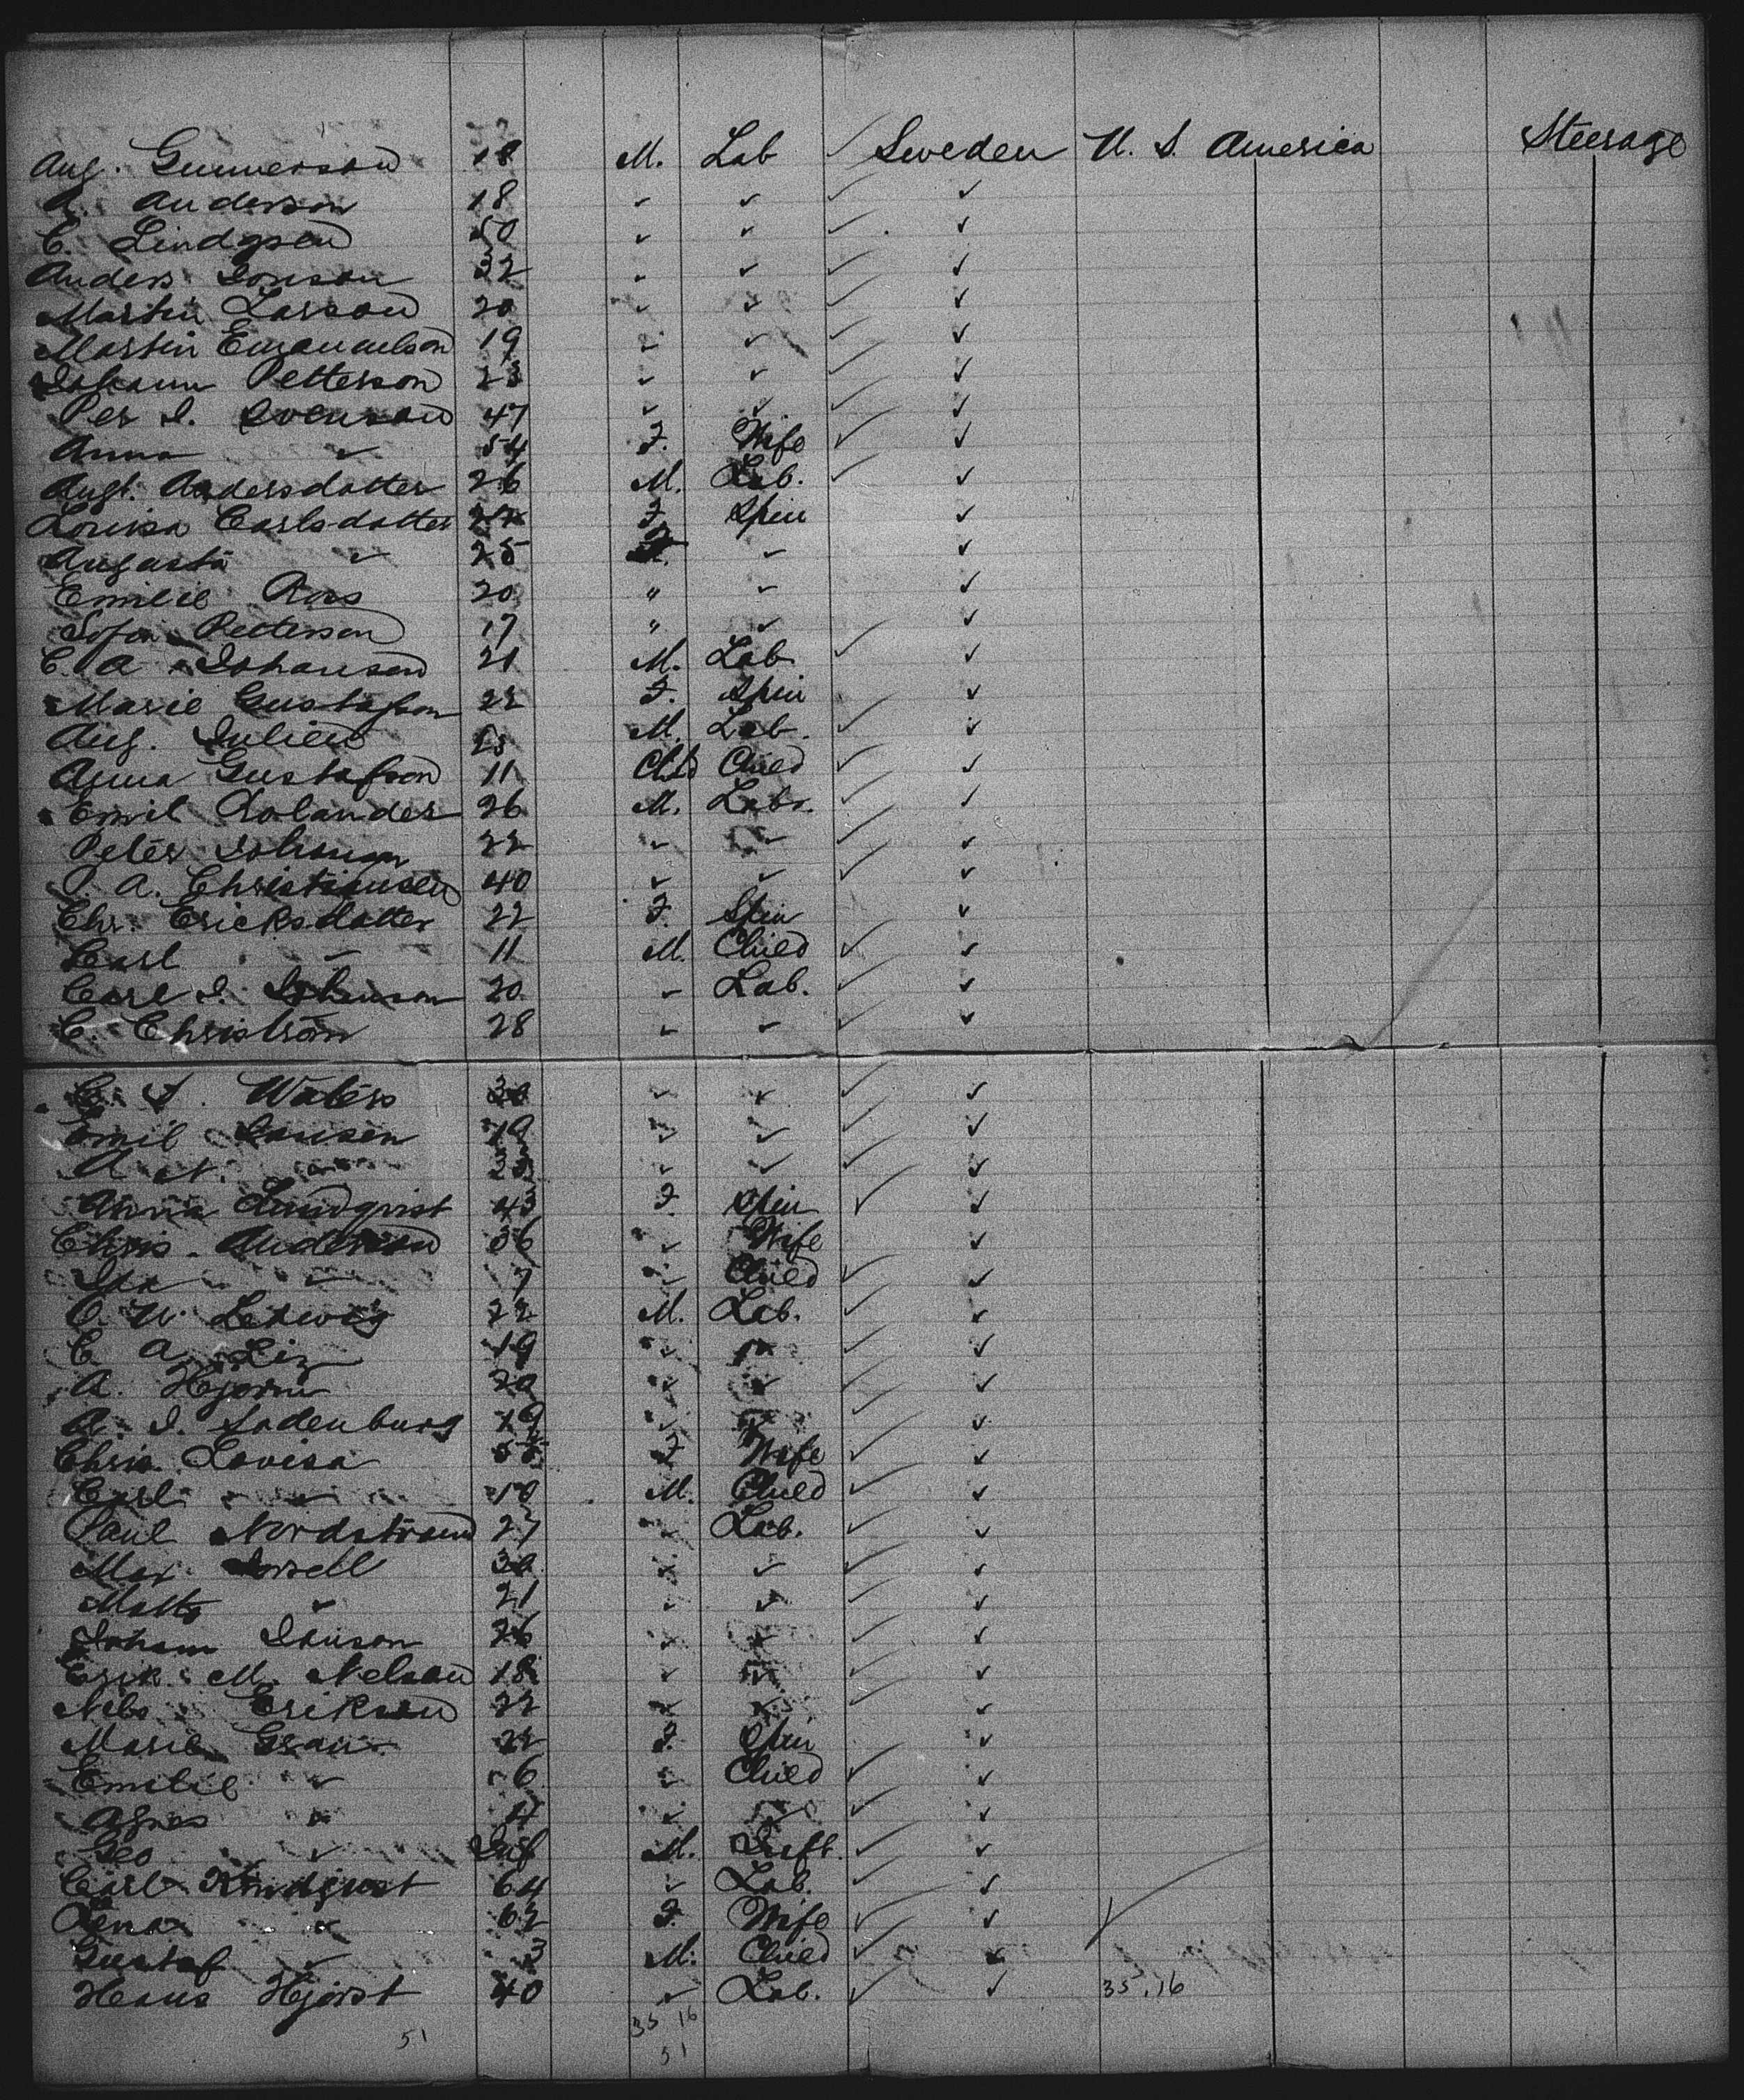 Aug. Gunnerson 18 M. Lab ✓ Sweden U. S. America Steerage
A. Anderson 18 ✓ ✓ ✓ ✓
C. Lindgren 50 ✓ ✓ ✓ ✓
Anders Jonson 32 ✓ ✓ ✓ ✓
Martin Larson 20 ✓ ✓ ✓ ✓
Martin Emanuelson 19 ✓ ✓ ✓ ✓
Johann Petterson 23 ✓ ✓ ✓ ✓
Per J. Svenson 47 ✓ ✓ ✓ ✓
Anna ✓ 54 F. Wife ✓ ✓
Augt. Andersdotter 26 M. Lab. ✓ ✓
Lovisa Carlsdotter F Spin ✓
Augusta ✓ 25 F. ✓ ✓
Emilie Roos 20 " ✓ ✓
Sofia Petterson 17 " ✓ ✓
C. A Johanson 21 M. Lab. ✓ ✓
Marie Gustafson 22 F. Spin ✓
Aug. Julien 25 M. Lab. ✓ ✓
Anna Gustafson 11 Child Child ✓ ✓
Emil Rolander 26 M. Labr. ✓ ✓
Peter Johnson 22 ✓ ✓ ✓ ✓
P. A. Christiansen 40 ✓ ✓ ✓ ✓
Chr. Ericksdotter 22 F. Spin ✓
Carl ✓ 11 M. Child ✓ ✓
Carl J. Johnson 20 ✓ Lab. ✓ ✓
C. Christrom 28 ✓ ✓ ✓ ✓
C. J. Waters 30 ✓ ✓ ✓ ✓
Emil Jansen 19 ✓ ✓ ✓ ✓
A. N. ✓ 23 ✓ ✓ ✓ ✓
Anna Lundqvist 43 F. Spin ✓ ✓
Chris. Anderson 36 ✓ Wife ✓
Ida ✓ 7 ✓ Child ✓ ✓
O. W. Ledwig 22 M. Lab. ✓ ✓
C. A. Liz 19 ✓ ✓ ✓ ✓
A. Hjorne 20 ✓ ✓ ✓ ✓
A. J. Sodenburg 19 ✓ ✓ ✓ ✓
Chris. Lovisa 55 F Wife ✓ ✓
Carl ✓ 10 M. Child ✓ ✓
Paul Nordstrom 27 ✓ Lab. ✓ ✓
Max 30 ✓ ✓ ✓ ✓
Matts ✓ 21 ✓ ✓ ✓ ✓
Johann Jonson 26 ✓ ✓ ✓ ✓
Erik M. Nelson 18 ✓ ✓ ✓ ✓
Nils Erikson 22 ✓ ✓ ✓ ✓
Marie Gran 22 F. Spin ✓
Emilie ✓ 6 ✓ Child ✓ ✓
Agnes ✓ 4 ✓ ✓ ✓ ✓
Geo ✓ Inf M. Inft. ✓ ✓
Carl 64 ✓ Lab. ✓ ✓
Lena ✓ 62 F. Wife ✓ ✓
Gustaf ✓ 3 M. Child ✓ ✓
Hans Hjorst 40 ✓ Lab. ✓ ✓ 35.16
51 35 16
51